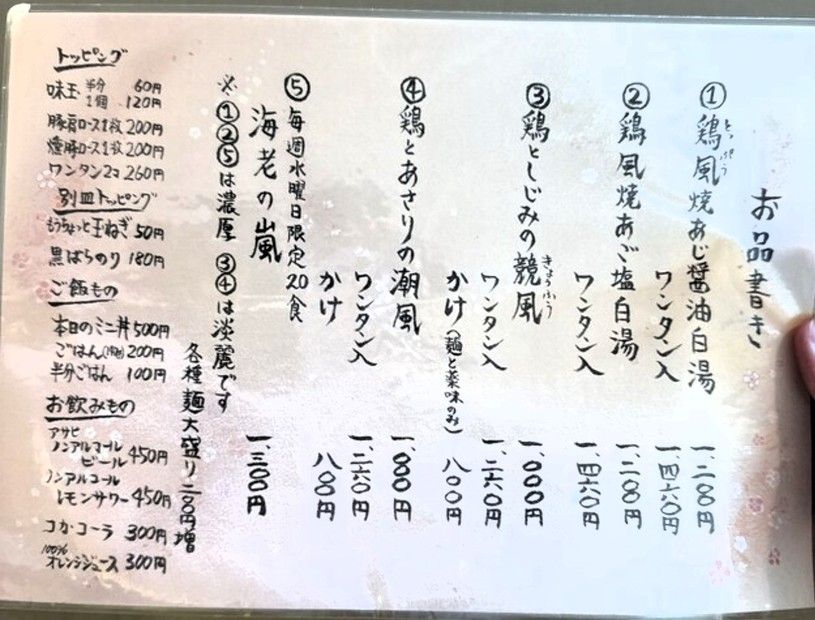 お品書き
①鶏風焼あじ醤油白湯 一、二〇〇円
とっぷう
ワンタン入 一、四六〇円
②鶏風焼あご塩白湯 一、二〇〇円
ワンタン入 一、四六〇円
③鶏としじみの競風 一、〇〇〇円
きょうふう
ワンタン入 一、二六〇円
かけ(麺と薬味のみ) 八〇〇円
④鶏とあさりの潮風 一、〇〇〇円
ワンタン入 一、二六〇円
かけ 八〇〇円
⑤毎週水曜日限定20食
海老の嵐 一、三〇〇円
※①②⑤は濃厚 ③④は淡麗です
各種麺大盛り二〇〇円増
トッピング
味玉 半分 60円
1個 120円
豚肩ロース1枚 200円
燻豚ロース1枚 200円
ワンタン2コ 260円
別皿トッピング
もうちょっと玉ねぎ 50円
黒ばらのり 180円
ご飯もの
本日のミニ丼 500円
ごはん 200円
半分ごはん 100円
お飲みもの
アサヒ
ノンアルコール
ビール 450円
ノンアルコール
レモンサワー 450円
コカ・コーラ 300円
100%
オレンジジュース 300円